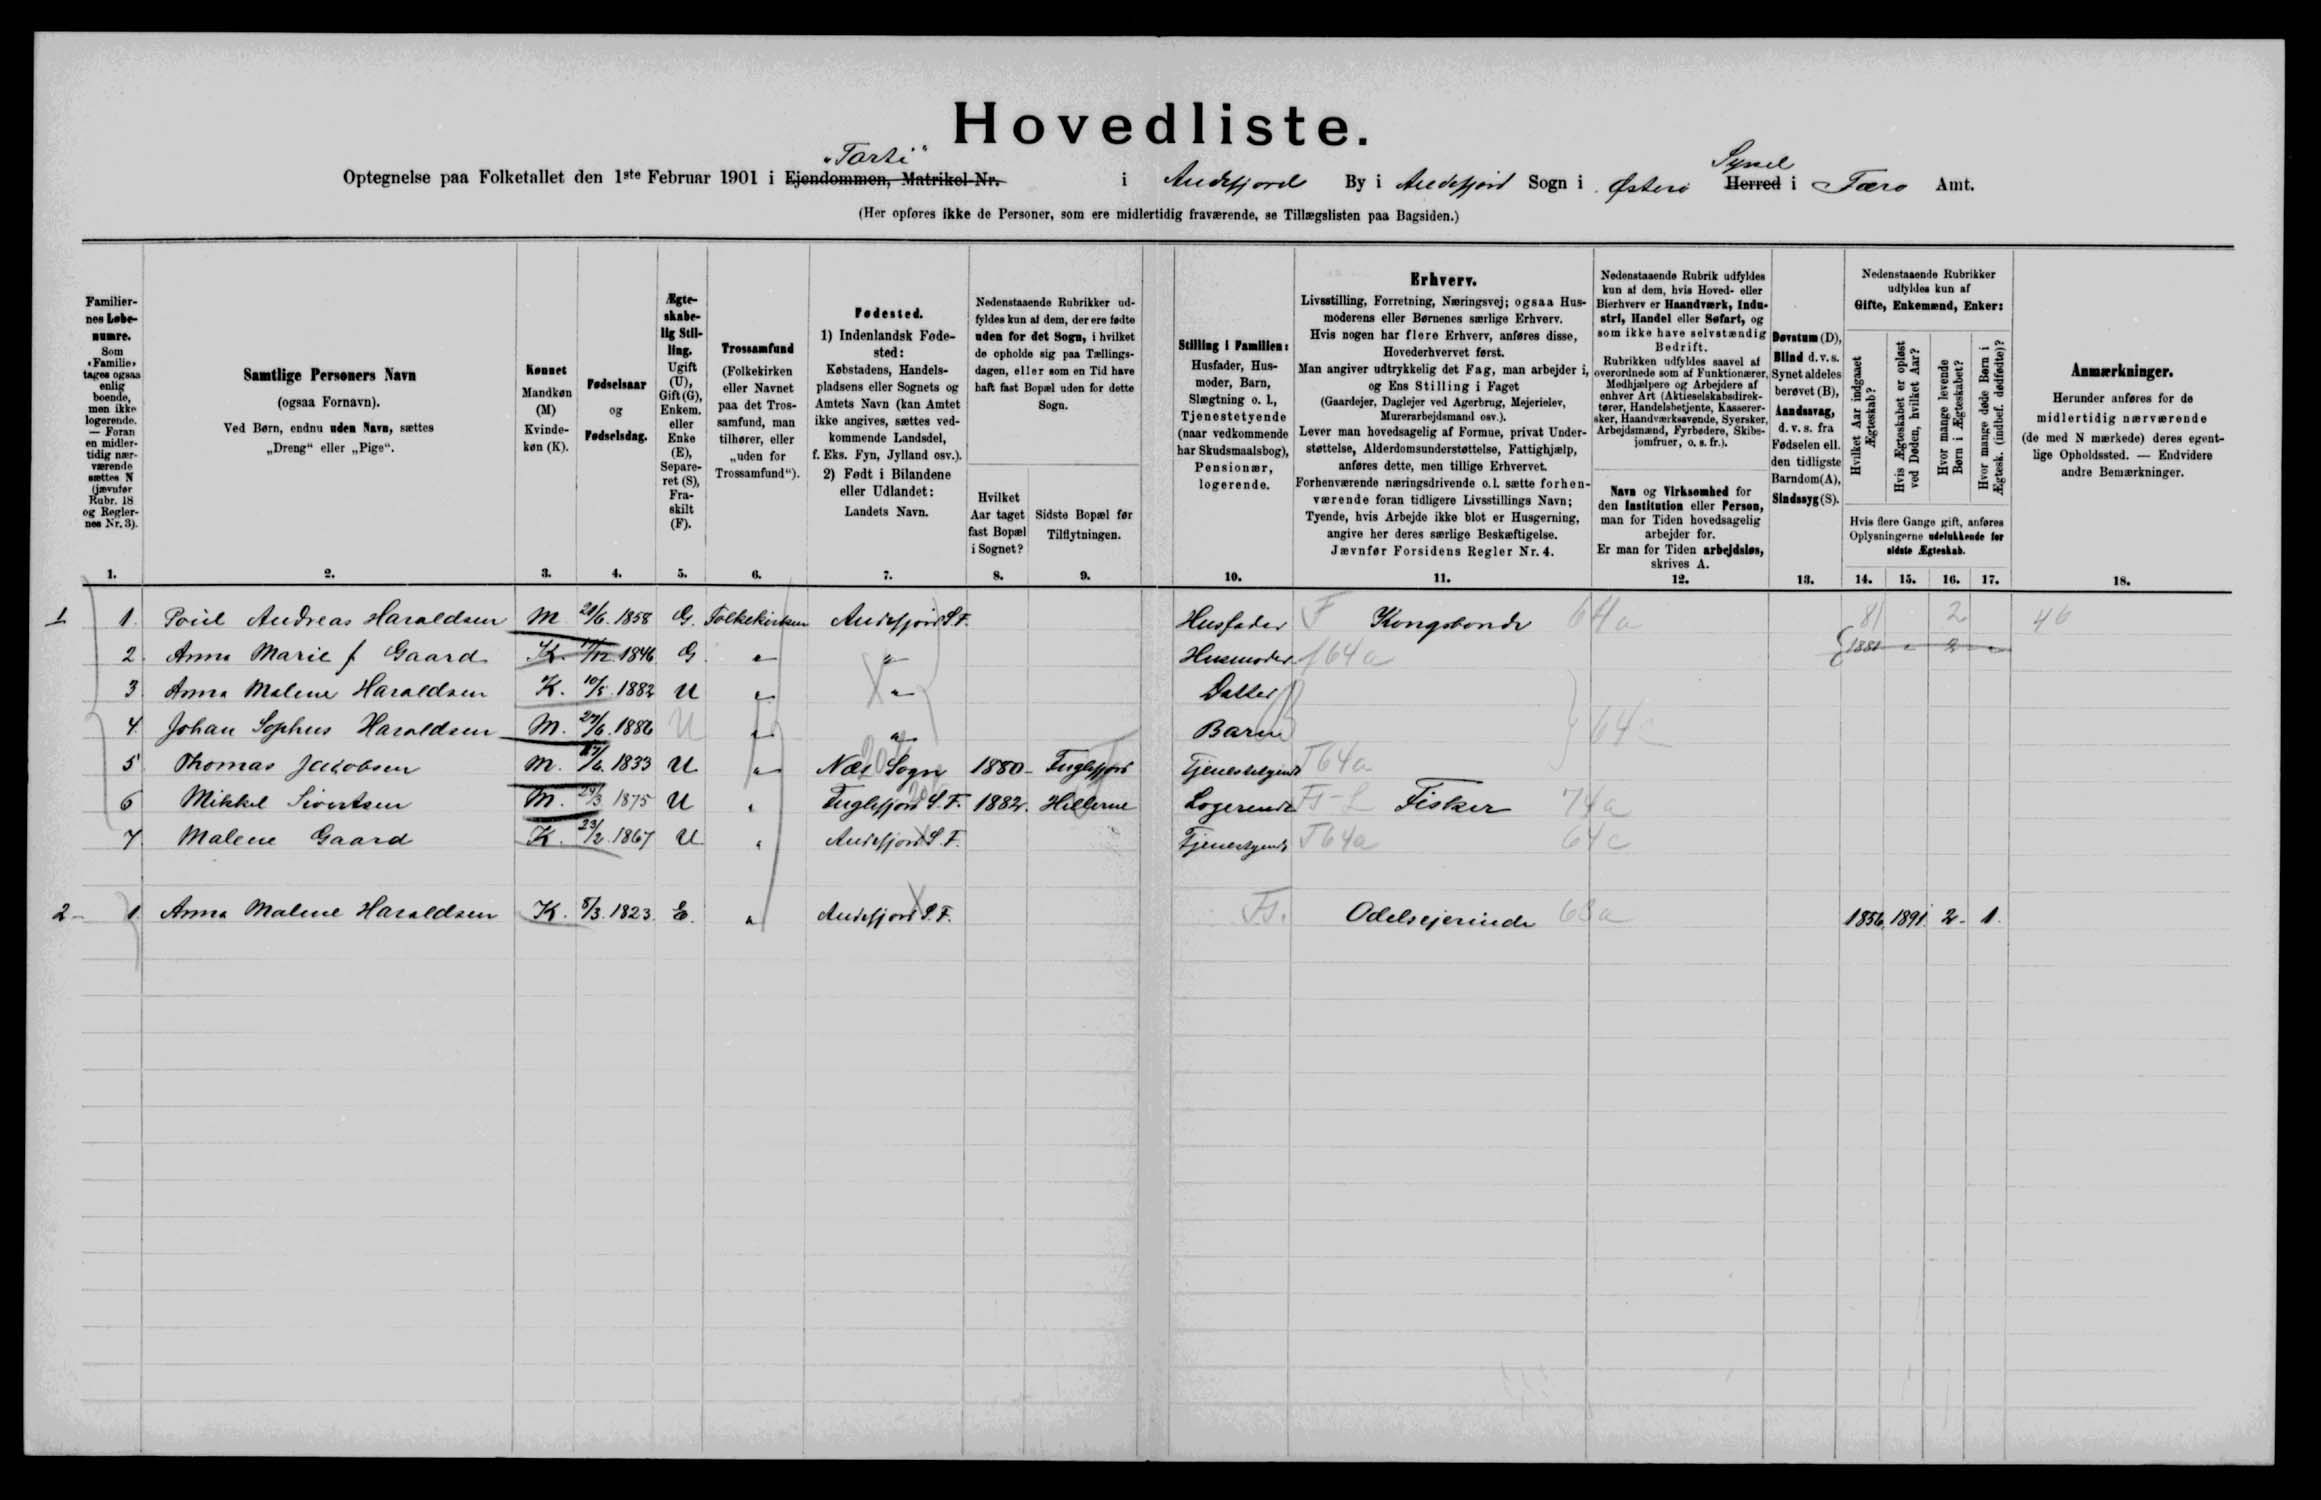 Hovedliste.
"Tarti" Syssel
Optegnelse paa Folketallet den 1ste Februar 1901 i Ejendommen, Matrikel-Nr. i Andefjord By i Andefjord Sogn i Østerø Herred i Færø Amt.
(Her opføres ikke de Personer, som ere midlertidig fraværende, se Tillægslisten paa Bagsiden.)
Familiernes Løbenumre.
Som «Familie» tages ogsaa enlig boende, men ikke logerende. — Foran en midlertidig nærværende sættes N (jævnfør Rubr. 18 og Reglernes Nr. 3).
Samtlige Personers Navn
(ogsaa Fornavn).
Ved Børn, endnu uden Navn, sættes
„Dreng" eller „Pige".
Kønnet
Mandkøn (M) Kvindekøn (K).
Fødselsaar
og
Fødselsdag.
Ægteskabelig Stilling.
Ugift (U), Gift (G), Enkem. eller Enke (E), Separeret (S), Fraskilt (F).
Trossamfund
(Folkekirken eller Navnet paa det Trossamfund, man tilhører, eller „uden for Trossamfund").
Fødested.
1) Indenlandsk Fødested:
Købstadens, Handelspladsens eller Sognets og Amtets Navn (kan Amtet ikke angives, sættes vedkommende Landsdel, f. Eks. Fyn, Jylland osv.).
2) Født i Bilandene eller Udlandet:
Landets Navn.
Nedenstaaende Rubrikker udfyldes kun af dem, der ere fødte uden for det Sogn, i hvilket de opholde sig paa Tællingsdagen, eller som en Tid have haft fast Bopæl uden for dette Sogn.
Hvilket Aar taget fast Bopæl i Sognet?
Sidste Bopæl før Tilflytningen.
Stilling i Familien:
Husfader, Husmoder, Barn, Slægtning o. l., Tjenestetyende (naar vedkommende har Skudsmaalsbog), Pensionær, logerende.
Erhverv.
Livsstilling, Forretning, Næringsvej; ogsaa Husmoderens eller Børnenes særlige Erhverv.
Hvis nogen har flere Erhverv, anføres disse, Hovederhvervet først.
Man angiver udtrykkelig det Fag, man arbejder i, og Ens Stilling i Faget
(Gaardejer, Daglejer ved Agerbrug, Mejerielev, Murerarbejdsmand osv.).
Lever man hovedsagelig af Formue, privat Understøttelse, Alderdomsunderstøttelse, Fattighjælp, anføres dette, men tillige Erhvervet.
Forhenværende næringsdrivende o.l. sætte forhenværende foran tidligere Livsstillings Navn;
Tyende, hvis Arbejde ikke blot er Husgerning, angive her deres særlige Beskæftigelse.
Jævnfør Forsidens Regler Nr. 4.
Nedenstaaende Rubrik udfyldes kun af dem, hvis Hoved- eller Bierhverv er Haandværk, Industri, Handel eller Søfart, og som ikke have selvstændig Bedrift.
Rubrikken udfyldes saavel af overordnede som af Funktionærer, Medhjælpere og Arbejdere af enhver Art (Aktieselskabsdirektører, Handelsbetjente, Kasserersker, Haandværkssvende, Syersker, Arbejdsmænd, Fyrbødere, Skibsjomfruer, o. s. fr.).
Navn og Virksomhed for den Institution eller Person, man for Tiden hovedsagelig arbejder for.
Er man for Tiden arbejdsløs, skrives A.
Døvstum (D), Blind d. v. s. Synet aldeles berøvet (B), Aandssvag, d. v. s. fra Fødselen ell. den tidligste Barndom (A), Sindssyg (S).
Nedenstaaende Rubrikker udfyldes kun af
Gifte, Enkemænd, Enker:
Hvilket Aar indgaaet Ægteskab?
Hvis Ægteskabet er opløst ved Døden, hvilket Aar?
Hvor mange levende Børn i Ægteskabet?
Hvor mange døde Børn i Ægtesk. (indbef. dødfødte)?
Hvis flere Gange gift, anføres Oplysningerne udelukkende for sidste Ægteskab.
Anmærkninger.
Herunder anføres for de midlertidig nærværende (de med N mærkede) deres egentlige Opholdssted. — Endvidere andre Bemærkninger.
1. 2. 3. 4. 5. 6. 7. 8. 9. 10. 11. 12. 13. 14. 15. 16. 17. 18.
1 1. Poul Andreas Haraldsen M 1858 G. Folkekirken Andefjord S. F. Husfader F Kongsbonde 64a 81 2 46
2. Anna Marie f Gaard K. 1846 G " " Husmoder f 64a 1881 - 2 -
3 Anna Malene Haraldsen K. 10/5 1882 U " " Datter
4. Johan Sophus Haraldsen M. 1886 U " " Barn 64c
5 Thomas Jacobsen M. 1833 U " Næs Sogn 1880 - Fuglefjord Tjenestetyende T64a
6 Mikkel Sivertsen M. 29/3 1875 U " Fuglefjord S. F. 1882. Hellerne Logerende Fs-L Fisker 74a
7. Malene Gaard K. 23/2 1867 U " Andefjord S. F. Tjenestyende T64a 64c
2- 1 Anna Malene Haraldsen K. 8/3. 1823. E. " Andefjord S. F. Fs. Odelsejerinde 68a 1856. 1891. 2- 1.